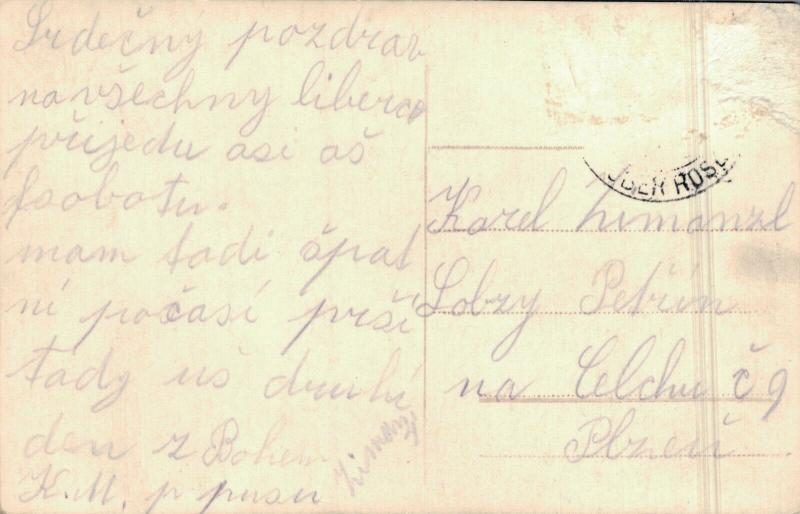 Srdečný pozdrav
na všechny liberce
přijedu asi aš
fsobotu.
mam tadi špat
ní počasí prší
tady uš druhí
den z Bohem
K.M. p pusu
OBER ROS
Karel
Lobzy Petřín
na Celchu č 9
Plzeň